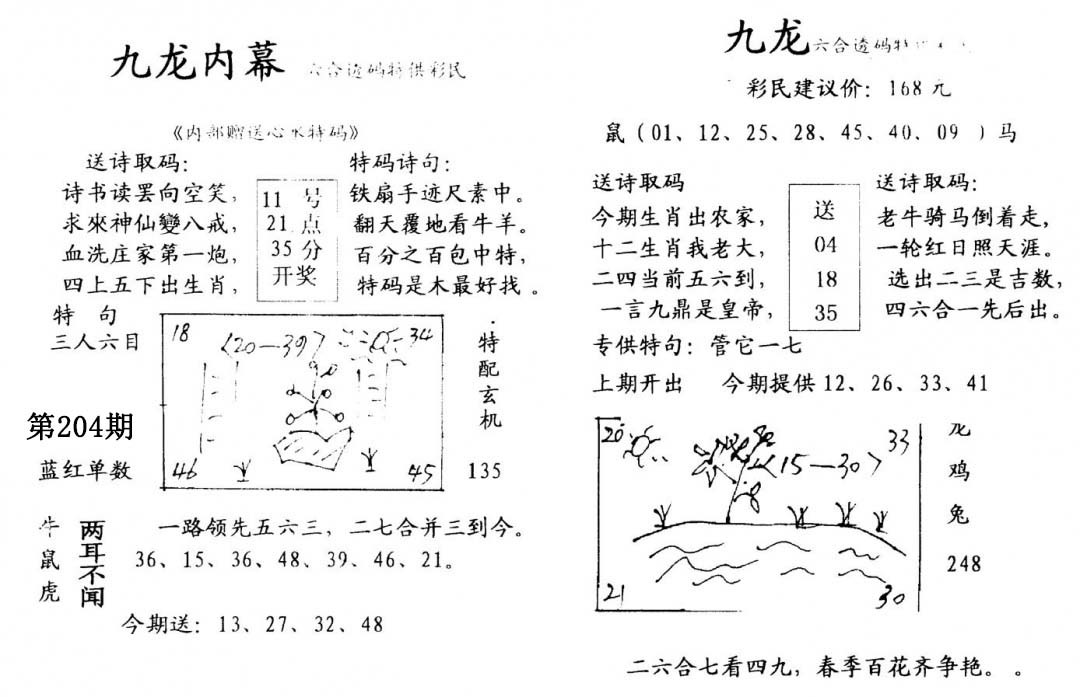 九龙内幕 六合透码特供彩民
《内部赠送心水特码》
送诗取码:
诗书读罢向空笑,
求來神仙變八戒,
血洗庄家第一炮,
四上五下出生肖,
11 号
21 点
35 分
开奖
特码诗句:
铁扇手迹尺素中。
翻天覆地看牛羊。
百分之百包中特,
特码是木最好找。
特 句
三人六目
第204期
蓝红单数
18
〈20—39〉
34
46
45
特配玄机
135
牛
鼠
虎
两耳不闻
一路领先五六三，二七合并三到今。
36、15、36、48、39、46、21。
今期送: 13、27、32、48
九龙六合透码特
彩民建议价: 168 元
鼠（01、12、25、28、45、40、09 ）马
送诗取码
今期生肖出农家，
十二生肖我老大，
二四当前五六到，
一言九鼎是皇帝，
送
04
18
35
送诗取码:
老牛骑马倒着走,
一轮红日照天涯。
选出二三是吉数,
四六合一先后出。
专供特句: 管它一七
上期开出 今期提供 12、26、33、41
20
33
〈15—30〉
21
30
龙
鸡
兔
248
二六合七看四九，春季百花齐争艳。 。